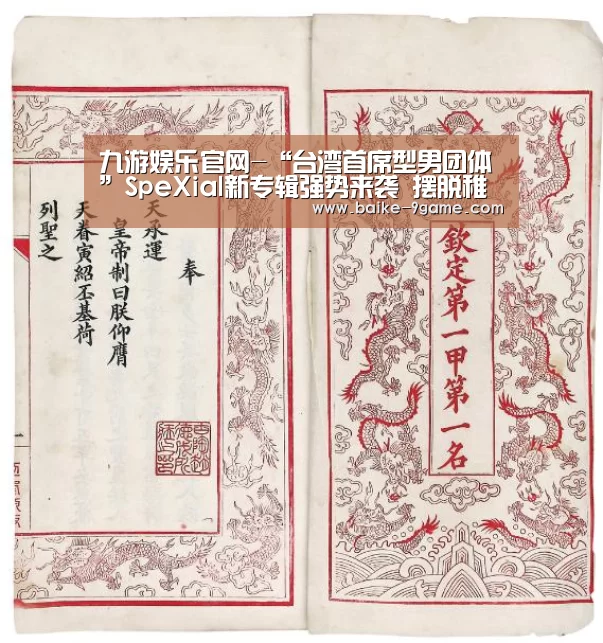 九游娱乐官网-“台湾首席型男团体
”SpeXial新专辑强势来袭 摆脱稚
www.baike-9game.com
欽定第一甲第一名
奉
天承運
皇帝制曰朕仰膺
天眷寅紹丕基荷
列聖之